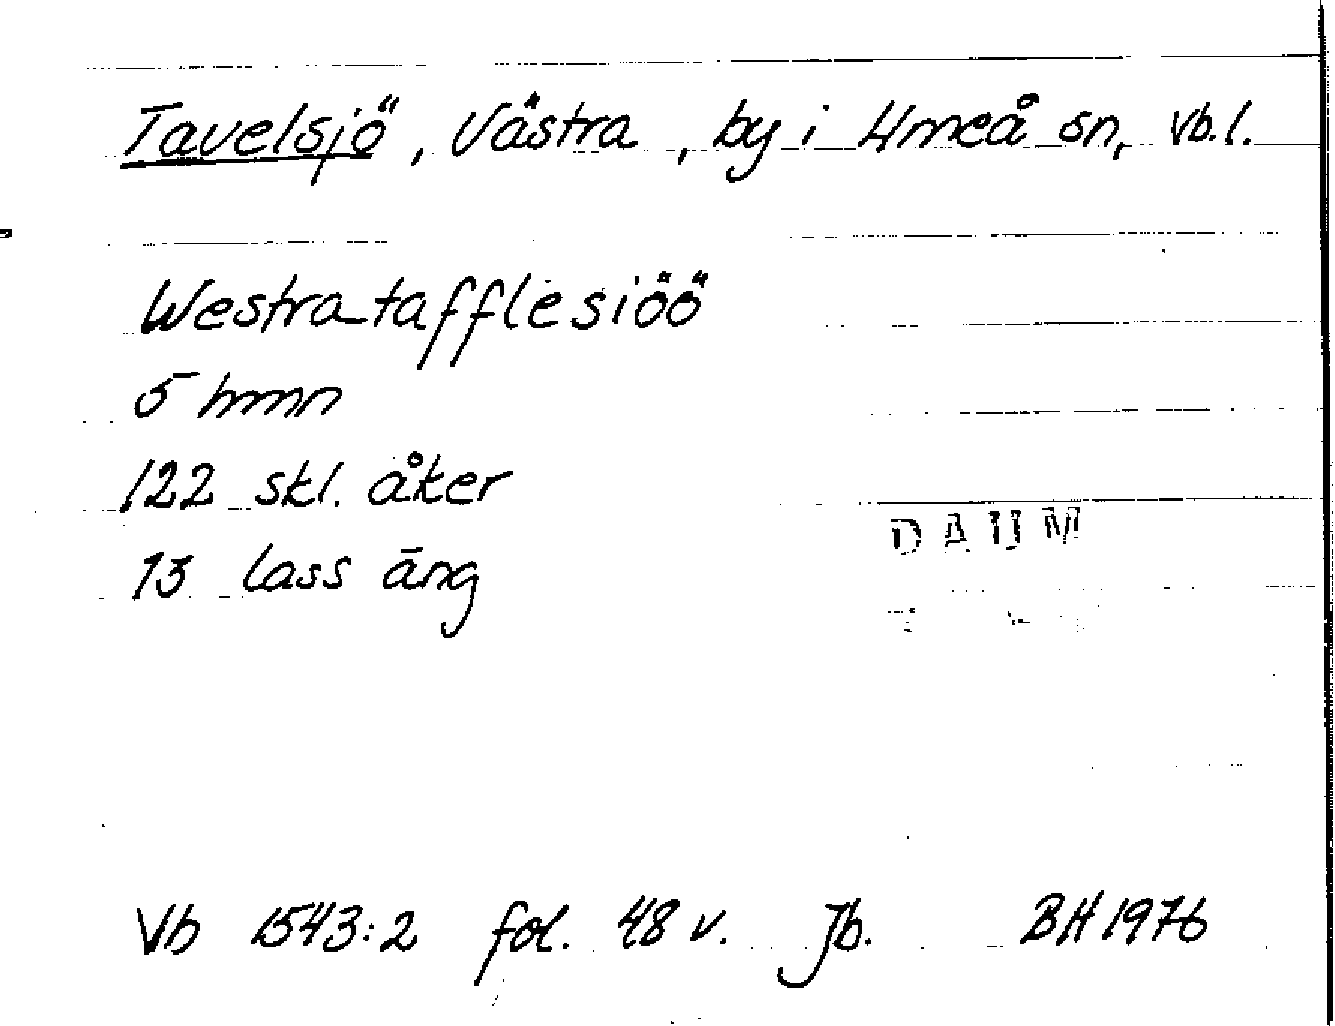 Tavelsjö, Västra, by i Umeå sn, Vb.l.
Westra tafflesiöö
5 hmn
122 skl. åker
13 lass äng
DAUM
Vb 1543:2 fol. 48 v. Jb. BH 1976